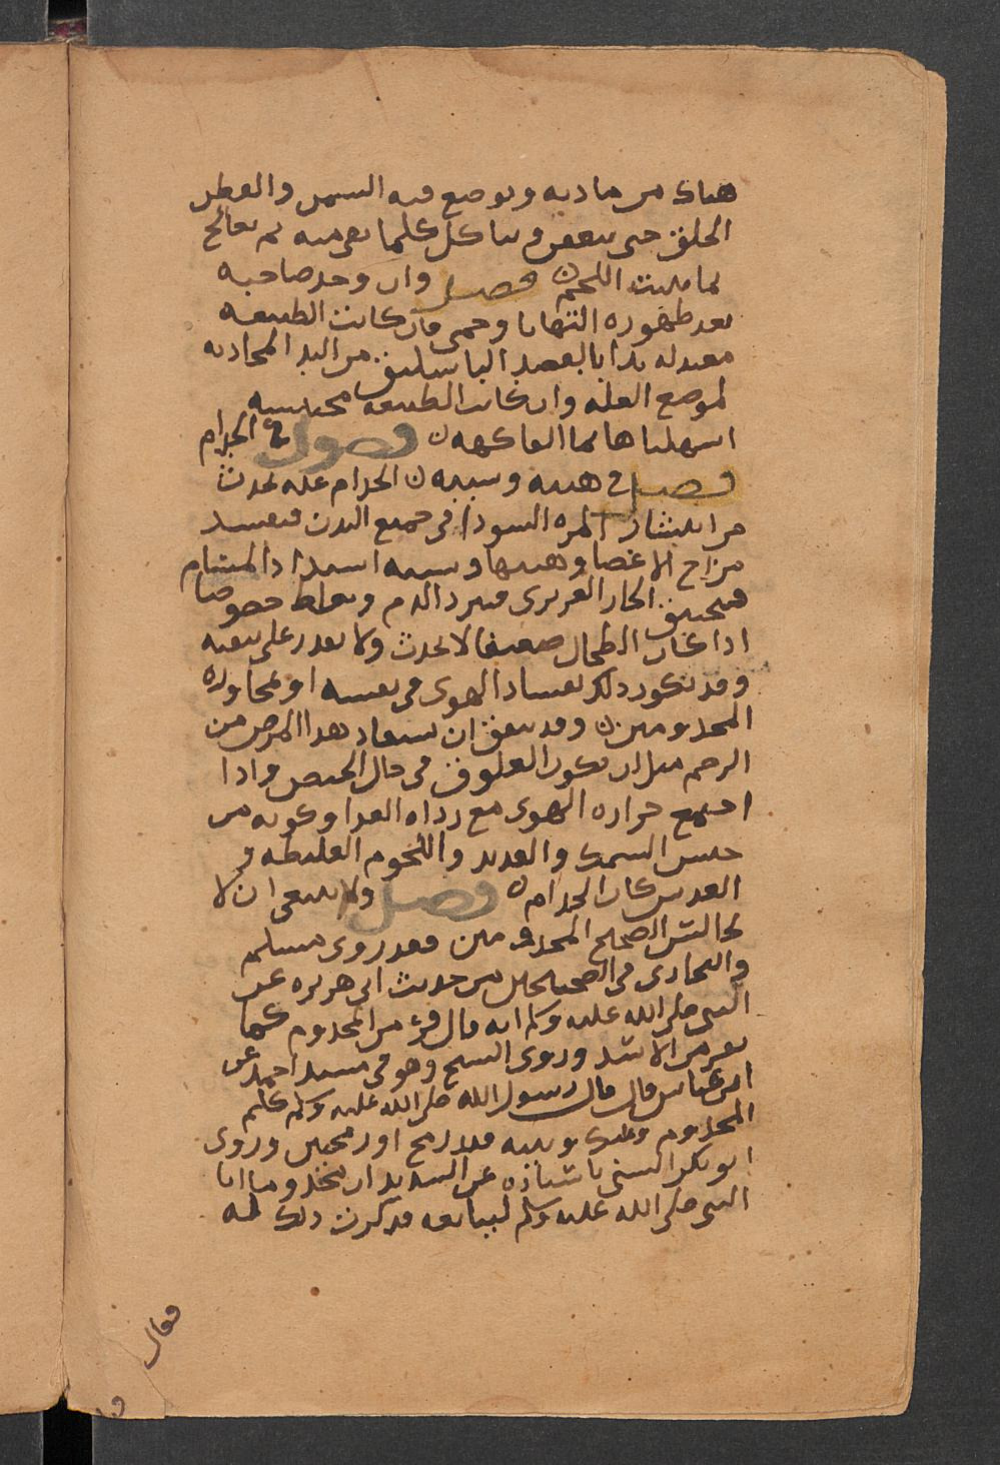 هناك من مادته ويوضع فيه السمن والقطن
الخلق حتى يتعفن ويتاكل كلما بقى منه ثم يعالج
بما ينبت اللحم فصل وان وجد صاحبه
بعد ظهوره التهابا وحمى فان كانت الطبيعه
معتدله بدانا بفصد الباسليق من اليد المحاذيه
لموضع العله وان كانت الطبيعه محتبسه
اسهلناها بما الفاكهه فصول في الجذام
فصل في هيئته وسببه الجذام عله تحدث
من انتشار المره السودا في جميع البدن فيفسد
مزاج الاعضا وهيئتها وسببه انسداد المسام
فيختنق الحار الغريزى فيبرد الدم ويغلظ خصوصا
اذا كان الطحال ضعيفا لا يجذب ولا يقدر على تنقيه
وقد يكون ذلك لفساد الهوى فى نفسه او لمجاوره
المجذومين وقد يتفق ان يستفاد هذا المرض من
الرحم مثل ان يكون العلوق فى حال الحيض واذا
اجتمع حراره الهوى مع رداه الغدا وكونه من
جنس السمك والقديد واللحوم الغليظه و
العدس كان الجذام فصل ولا ينبغى ان لا
يجالس الصحيح المجذومين فقد روى مسلم
والبخارى فى الصحيحين من حديث ابى هريره عن
النبى صلى الله عليه وسلم انه قال فر من المجذوم كما
تفر من الاسد وروى السنى وهو فى مسند احمد عن
ابن عباس قال قال رسول الله صلى الله عليه وسلم كلم
المجذوم وبينك وبينه قدر رمح او رمحين وروى
ابو بكر السنى باسناده عن الشريد ان مجذوما اتا
النبى صلى الله عليه وسلم ليبايعه فذكرت ذلك له
فقال